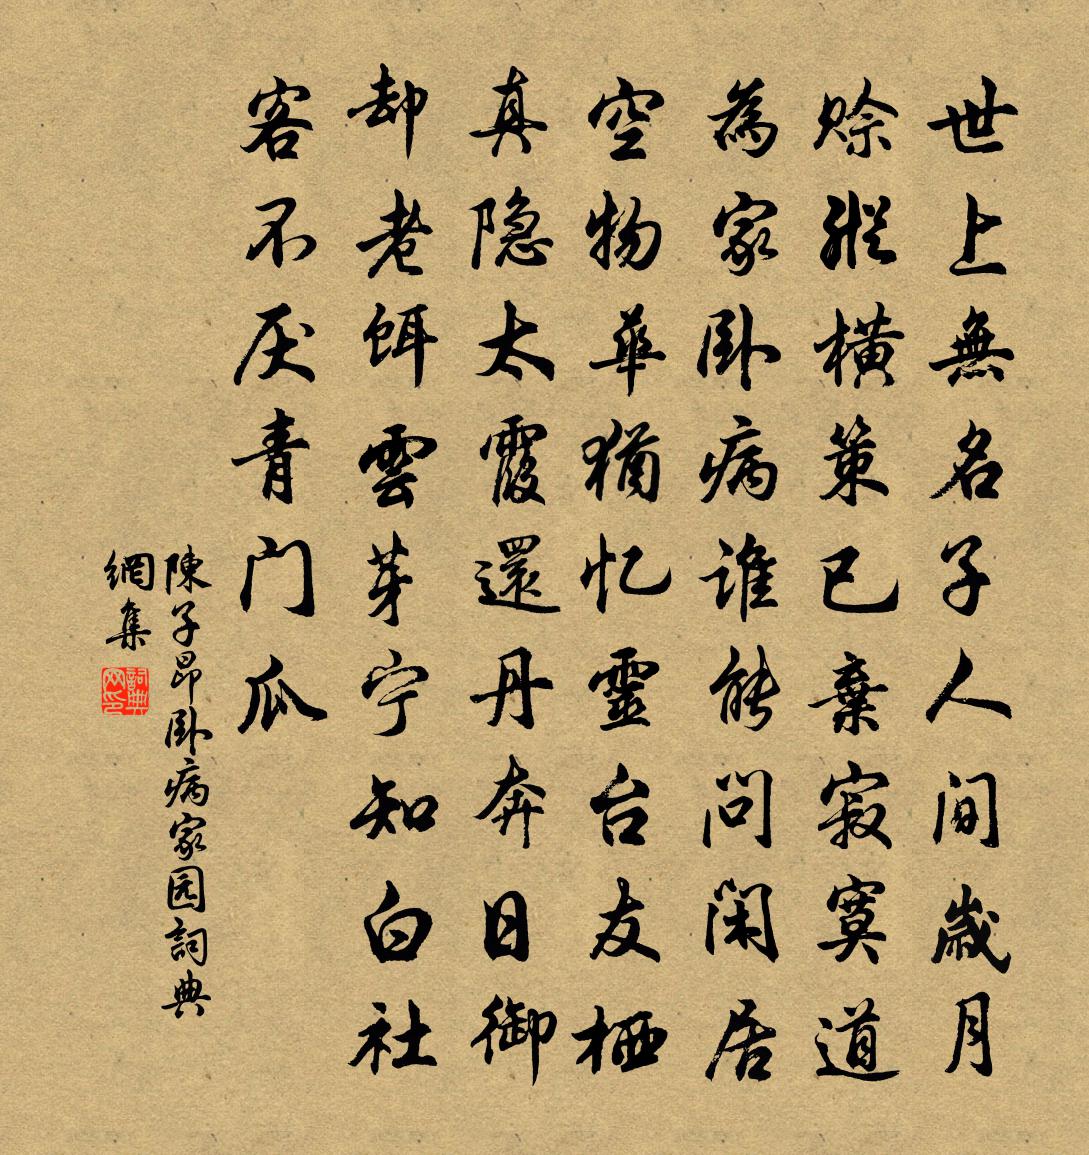 世上無名子人间歲月
赊縱橫策已棄寂寞道
為家卧病谁能問闲居
空物華猶忆靈台友栖
真隐太霞還丹奔日御
却老餌雲芽宁知白社
客不厌青门瓜
陳子昂卧病家园詞典
網集
詞典网印